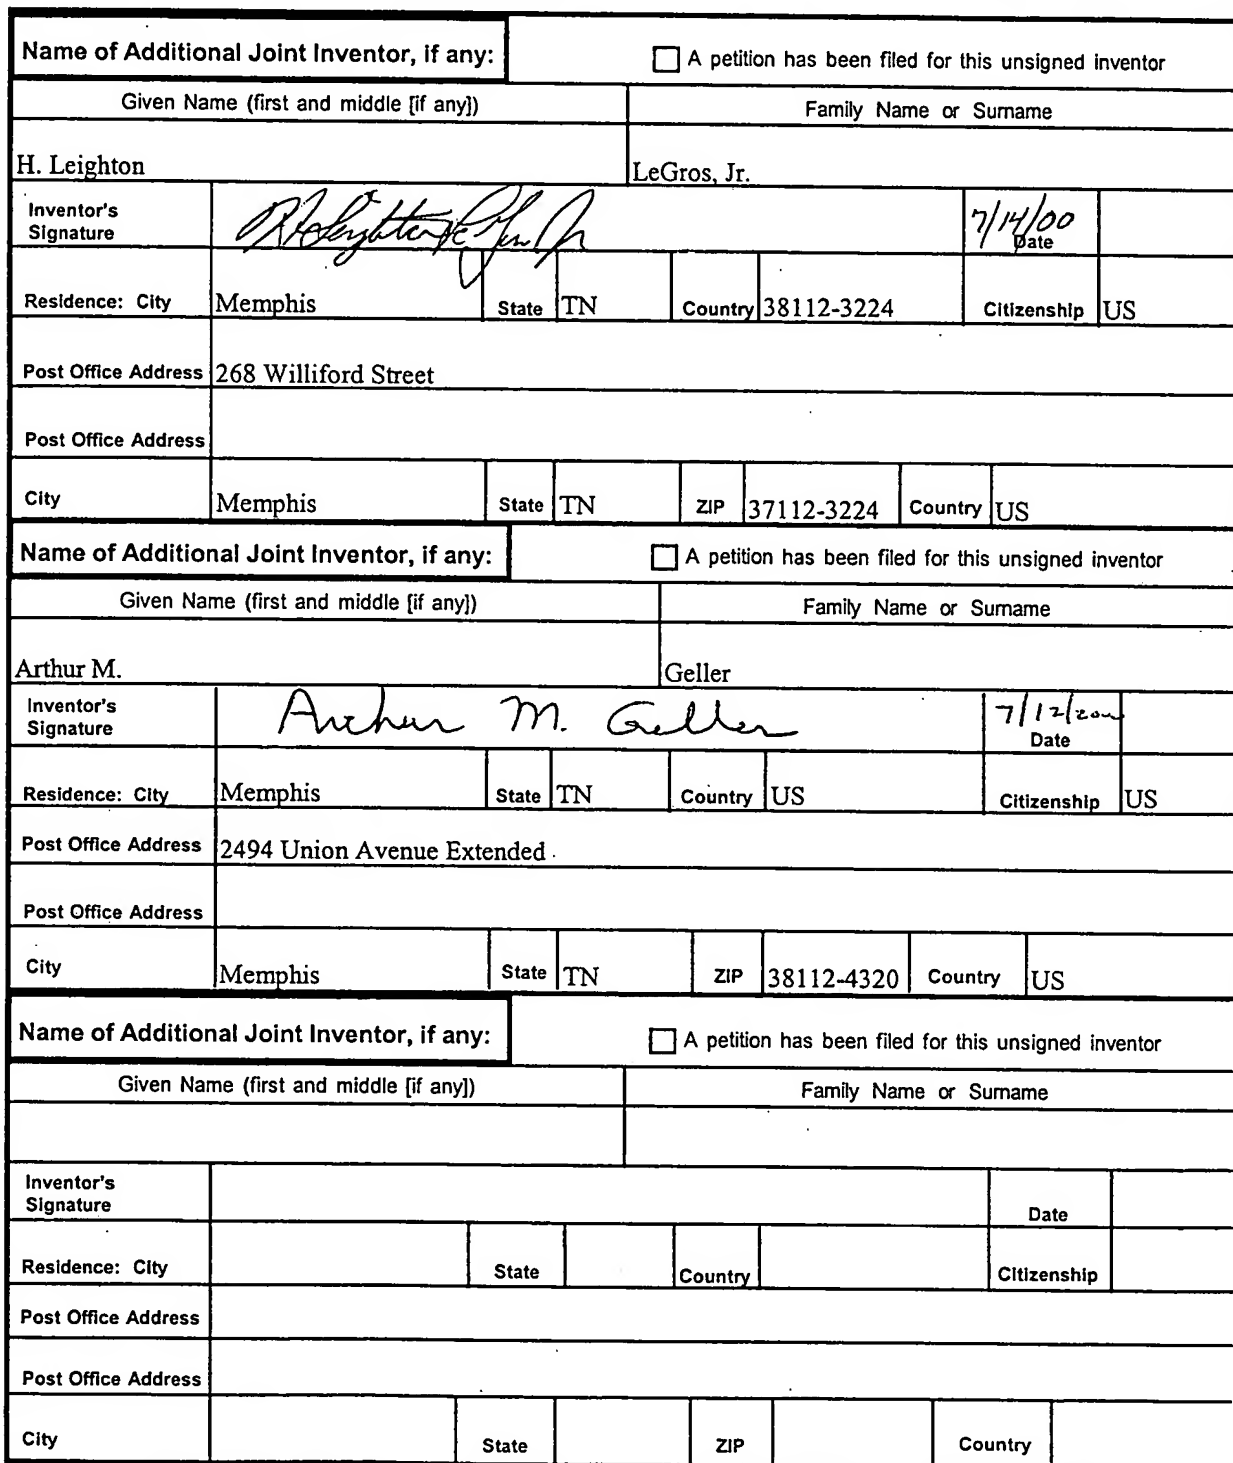 Name of Additional Joint Inventor, if any: A petition has been filed for this unsigned inventor
Given Name (first and middle [if any]) Family Name or Surname
H. Leighton LeGros, Jr.
Inventor's Signature 7/14/00 Date
Residence: City Memphis State TN Country 38112-3224 Citizenship US
Post Office Address 268 Williford Street
Post Office Address
City Memphis State TN ZIP 37112-3224 Country US
Name of Additional Joint Inventor, if any: A petition has been filed for this unsigned inventor
Given Name (first and middle [if any]) Family Name or Surname
Arthur M. Geller
Inventor's Signature Arthur M. Geller 7/12/200 Date
Residence: City Memphis State TN Country US Citizenship US
Post Office Address 2494 Union Avenue Extended
Post Office Address
City Memphis State TN ZIP 38112-4320 Country US
Name of Additional Joint Inventor, if any: A petition has been filed for this unsigned inventor
Given Name (first and middle [if any]) Family Name or Surname
Inventor's Signature Date
Residence: City State Country Citizenship
Post Office Address
Post Office Address
City State ZIP Country